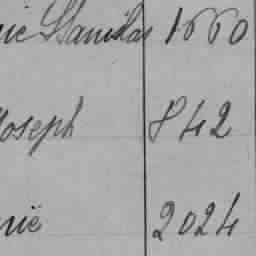 nie Stanislas 1660
Joseph 842
rie 2024